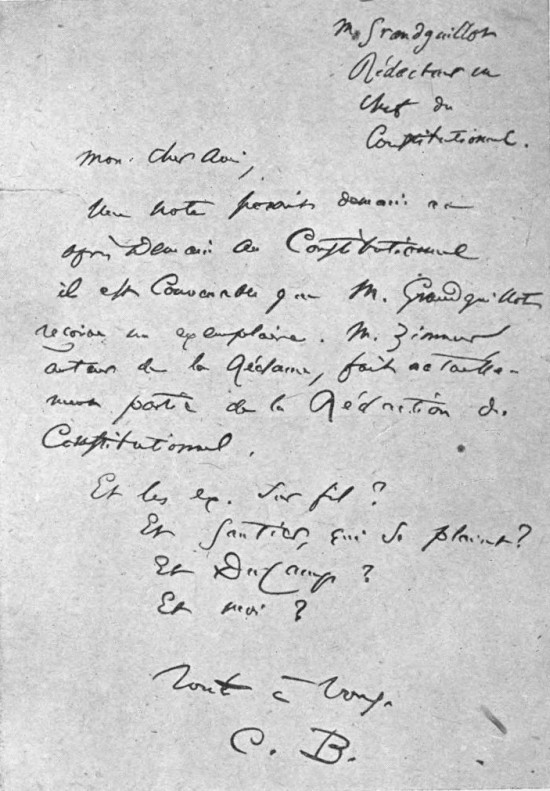 M. Grandguillot
Rédacteur en
Chef du
Constitutionnel.
Mon cher Ami,
Une note paraît demain ou
après Demain au Constitutionnel
il est Convenable que M. Grandguillot
reçoive un exemplaire. M.
auteur de la Réclame, fait actuelle-
ment partie de la Rédaction du
Constitutionnel.
Et les ex. sur fil ?
Et Gautier, qui se plaint ?
Et DuCamp ?
Et moi ?
Tout à vous.
C. B.